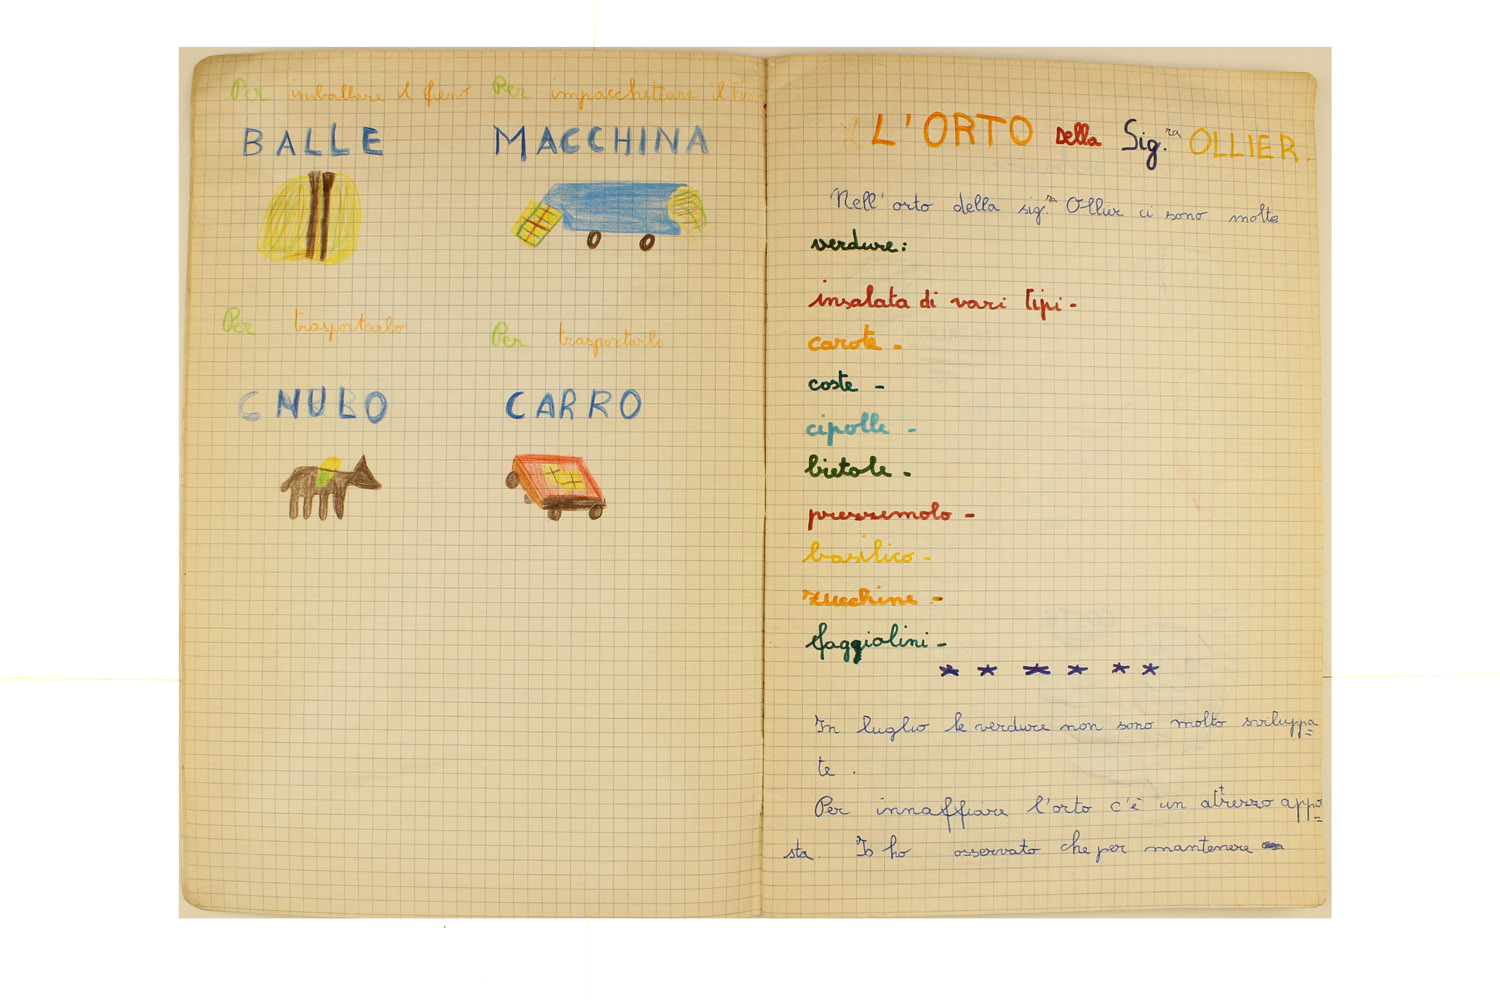 Per imballare il fieno
Per impacchettare il Fieno
BALLE
MACCHINA
Per trasportarlo
Per trasportarlo
MULO
CARRO
L'ORTO della Sig.ra OLLIER.
Nell'orto della sig.ra Ollier ci sono molte
verdure:
insalata di vari tipi -
carote -
coste -
cipolle -
bietole -
prezzemolo -
basilico -
zucchine -
faggiolini -
In luglio le verdure non sono molto sviluppa=
te .
Per innaffiare l'orto c'è un attrezzo appo=
sta. Io ho osservato che per mantenere